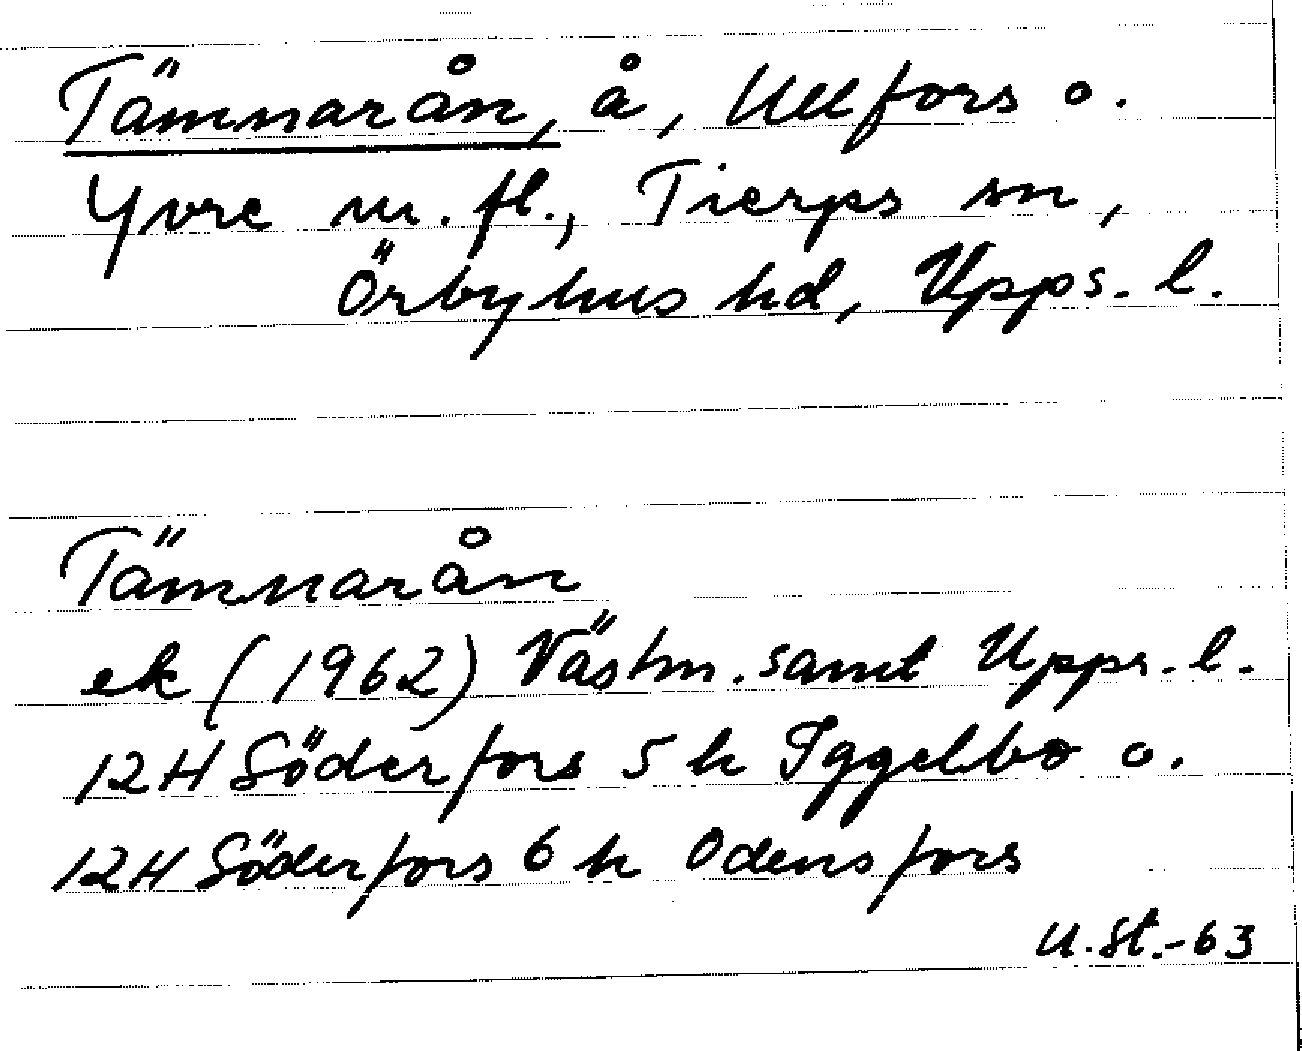 Tämnarån, å, Ullfors o.
Yvre m. fl., Tierps sn,
Örbyhus hd, Upps. l.
Tämnarån
ek (1962) Västm. samt Upps. l.
12H Söderfors 5 h Iggelbo o.
12H Söderfors 6 h Odensfors
U.St.-63